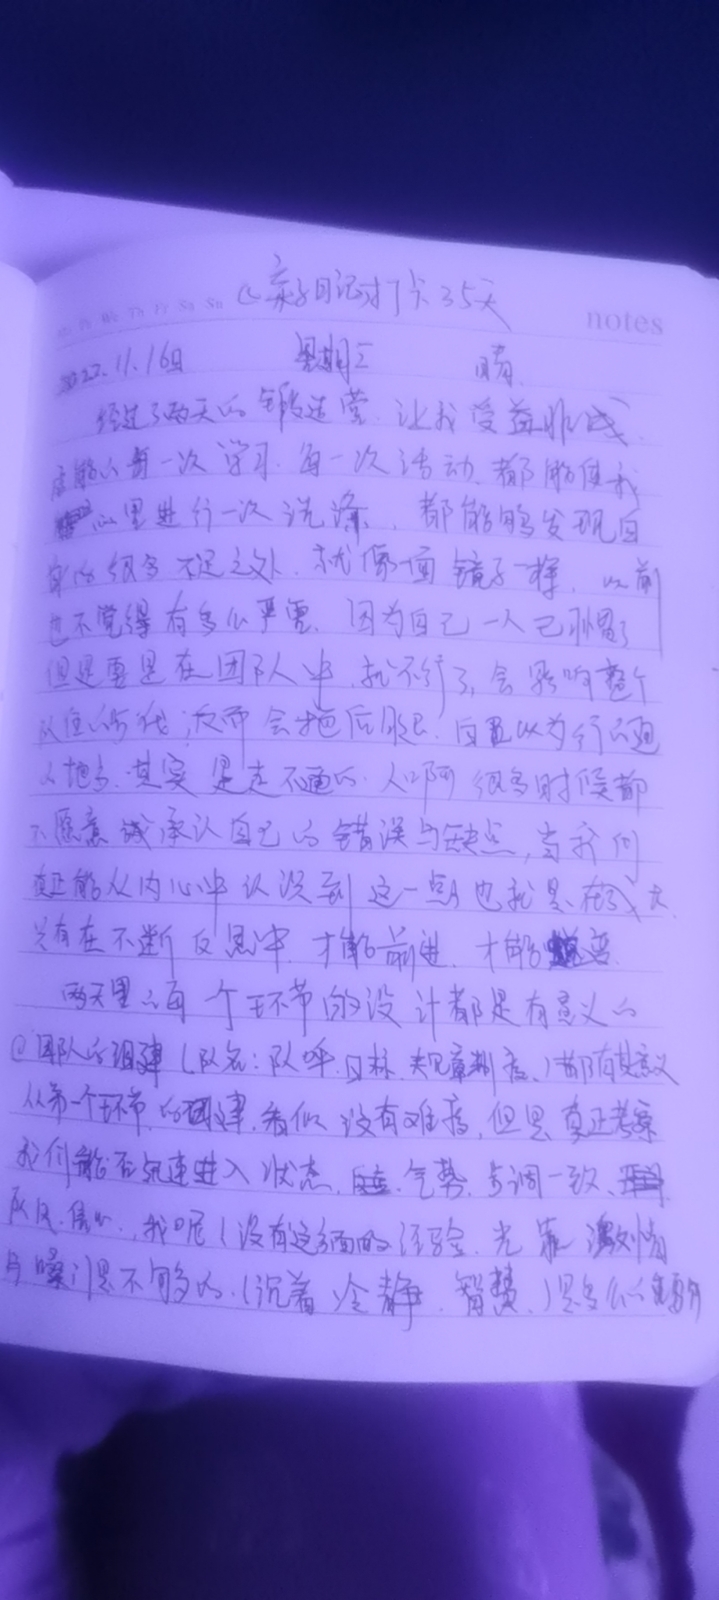 亲子日记打卡35天
notes
2022.11.16日 星期三 晴
经过了两天的锻造营.让我受益非浅
每一次学习.每一次活动.都能使我
心里进行一次洗涤.都能够发现自
身的很多不足之处.就像一面镜子一样.以前
也不觉得有多么严重.因为自己一人已习惯了
但是要是在团队中.就不行了,会影响整个
会拖后腿.自己以为行的通
的地方.其实是走不通的.人啊很多时候都
不愿意承认自己的错误与缺点,当我们
真正能从内心中认识到这一点也就是在成长.
只有在不断反思中.才能前进.才能蜕变
两天里的每一个环节的设计都是有意义的
①团队的组建(队名:队呼.目标.规章制度.)都有其意义
从第一个环节的团建.看似没有难度,但是真正考察
我们能否迅速进入状态.气势.步调一致.
我呢(没有这方面的经验.光靠激情
与嗓门是不够的.(沉着冷静.智慧.)是多么的重要